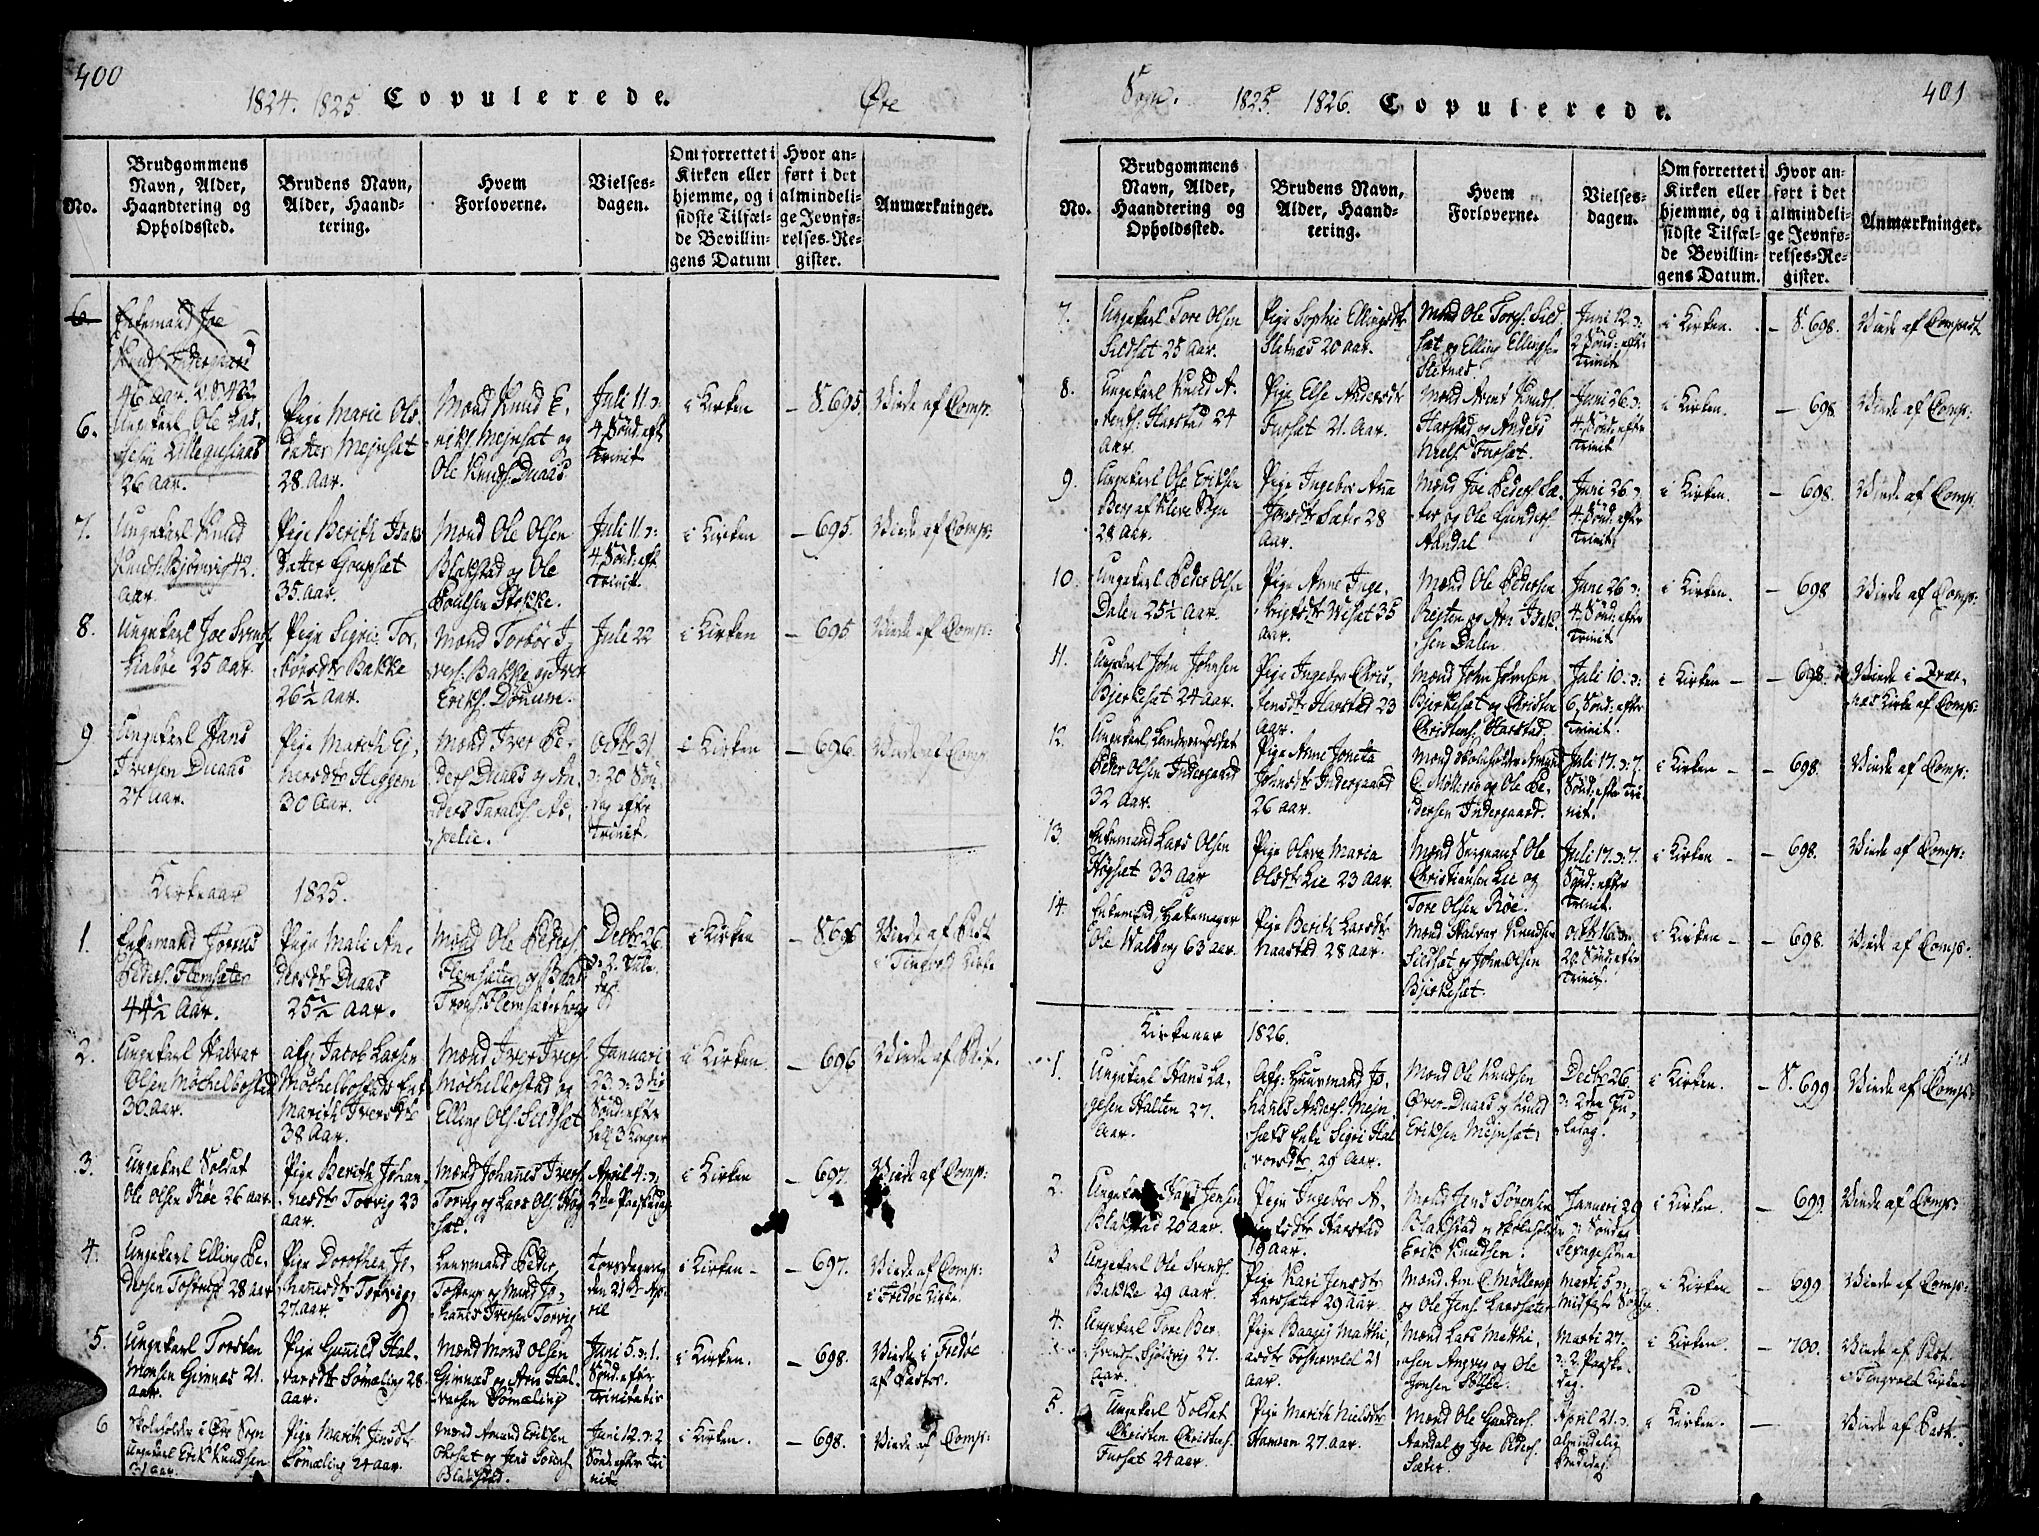 400
1824. 1825 Copulerede. Øre
No.
Brudgommens Navn, Alder, Haandtering og Opholdssted.
Brudens Navn, Alder, Haandtering.
Hvem Forloverne.
Vielsesdagen.
Om forrettet i Kirken eller hjemme, og i sidste Tilfælde Bevillingens Datum
Hvor anført i det almindelige Jevnførelses-Register.
Anmærkninger.
6.
Enkemand Joe
Knuds. Indergaard
46 aar.
6.
Ungekarl Ole Las-
26 Aar.
Pige Marie Ols
datter Mejnsæt
28. Aar.
Mænd Knud E-
riks. Mejnsæt og
Ole Knuds. Duaas
Juli 11. ɔ:
4. Sønd: eft
Trinit
i Kirken
S. 695
Viede af Comp:
7.
Ungekarl Knud
Knuds. Bjørnvig 42.
Aar.
Pige Berith Isaks
Datter Goupsæt
35. aar.
Mænd Ole Olsen
Blakstad og Ole
Poulsen Stokke.
Juli 11. ɔ:
4 Sønd: eft
Trinit
i Kirken
695.
Viede af Comp:
8.
Ungekarl Joe Svends.
25 Aar.
Pige Sigri Tor-
børsdtr Bakke
26½ Aar.
Mænd Torbør I-
vers. Bakke og Iver
Eriks. Dønum.
Juli 22
i Kirken
695
Viede af Comp:
9
Ungekarl Hans
Iversen Duaas
27 Aar.
Pige Mareth Ej-
nersdtr Heggem
30 Aar.
Mænd Iver Pe-
ders. Duaas og An-
ders Taralds. As-
pelie.
Octbr 31
ɔ: 20 Søn-
dg efter
Trinit.
i Kirken
696.
Viede af Comp.
Kirkeaar 1825.
1.
Enkemand
Peders. Flemsæter
44½ Aar.
Pige Male An-
dersdtr Duaas
25½ Aar.
Mænd Ole Peders.
Flemsæter og
Decbr 26
ɔ: 2. Jule-
dag
i Kirken
S. 696
Viede af
i Tingvold Kirke
2.
Ungekarl Halvar
Olsen Møckelbostad
30 Aar.
afg: Jacob Larsen
Møckelbostads Enke
Marith Iversdtr
38 Aar.
Mænd Iver Ivers.
Møckelbostad og
Elling Ols. Sildsæt
Januari
23. ɔ: 3 die
Sønd: efter
hell 3 Konger
i Kirken
696
Viede af
3.
Ungekarl Soldat
Ole Olsen Røe 26 aar.
Pige Berith Johan-
nesdtr Torvig 23
aar.
Mænd Johannes Ivers.
Torvig og Lars Ols. Høg-
sæt.
April 4. ɔ:
2den Paaskedag
i Kirken
697.
Viede af Comp:
4.
Ungekarl Elling Pe-
dersen 28 aar
Pige Dorothea Jo-
hannesdtr Torvig
27. aar.
Leensmand Peder
og Mand Jo-
hannes Iversen Torvig
Torsdagen
den 21de Ap-
ril
i Kirken
697.
Viede af Comp:
i Fredøe Kirke.
5.
Ungekarl Torsten
Monsen Gimnæs 21.
aar.
Pige Gunild Hal-
varsdtr Sømæling 28.
aar.
Mænd Mons Olsen
Gimnæs og Arn Hal-
varsen Sømæling
Juni 5. ɔ: 1.
Sønd: efter
Trinitatis
i Kirken.
698.
Viede i Fredøe
af Pastor.
6
Skoleholder i Øre Sogn
Ungekarl Erik Knudsen
31 aar.
Pige Marith Jensdtr
Sømæling 24 aar.
Mænd Amund Eriksen
og Jens Sørens.
Blakstad.
Juni 12. ɔ: 2
Sønd: efter Tri
nit.
i Kirken.
698.
Viede af Comp:
Sogn. 1825 1826. Copulerede.
401
No.
Brudgommens Navn, Alder, Haandtering og Opholdssted.
Brudens Navn, Alder, Haandtering.
Hvem Forloverne.
Vielsesdagen.
Om forrettet i Kirken eller hjemme, og i sidste Tilfælde Bevillingens Datum.
Hvor anført i det almindelige Jevnførelses-Register.
Anmærkninger.
7.
Ungekarl Tore Olsen
Sildsæt 25 Aar.
Pige Sophie Ellingsdtr
Sletnæs 20 aar.
Mænd Ole Tores. Sild
sæt og Elling Ellingsen
Sletnæs
Juni 12. ɔ:
2 Sønd: eftr
Trinit
i Kirken.
S. 698.
Viede af
8.
Ungekarl Knud A-
rents. Harstad 24
Aar.
Pige Else Andersdtr
Fursæt 21. Aar.
Mænd Arent Knuds
Harstad og Anders
Niels. Fursæt.
Juni 26. ɔ:
4. Sønd: efter
Trinit
i Kirken.
698
Viede af Comp:
9.
Ungekarl Ole Eriksen
Berg af Kleve Sogn
28 Aar.
Pige Ingebor Ana
Joesdtr Sæter 28
Aar.
Mænd Joe Peders. Sæ-
ter og Ole Gunders.
Aandal
Juni 26 ɔ:
4. Sønd: efter
Trinit:
i Kirken.
698.
Viede af Comp:
10.
Ungekarl Peder Olsen
Dalen 25½ Aar.
Pige Anne Inge-
brigtsdtr 35
Aar.
Mænd Ole Pedersen
og Arn Isak-
sen Dalen
Juni 26 ɔ:
4. Sønd: efter
Trinit
i Kirken.
698
Viede af Comp:
11.
Ungekarl John Johnsen
Bjerkesæt 24 Aar.
Pige Ingebor Chris-
tensdtr Harstad 23
Aar.
Mænd John Johnsen
Bjerkesæt og Christen
Christens. Harstad.
Juli 10. ɔ:
6. Sønd: efter
Trinit.
i Kirken
698.
Viede i Qvær-
næs Kirke af Comp:
12.
Ungekarl Landværnsoldat
Peder Olsen Indergaard
32 Aar.
Pige Anne Joneta
Johnsdtr Indergaard
26 aar.
Mænd Skoleholder Amund
C. Möllerop og Ole Pe-
dersen Indergaard.
Juli 17. ɔ: 7.
Sønd: efter Tri
nit.
i Kirken
698.
Viede af Comp:
13.
Enkemand Lars Olsen
Høgsæt 33 Aar
Pige Olava Maria
Olsdtr Lie 23 Aar.
Mænd Sergeant Ole
Christiansen Lie og
Tore Olsen Røe.
Juli 17. ɔ: 7.
Sønd: efter
Trinit.
i Kirken
698.
Viede af Comp:
14.
Ole Walberg 63 aar.
Pige Berith Larsdtr
Naastad 28 aar.
Mænd Halvar Knudsen
Sildsæt og John Olsen
Bjerkesæt.
Octbr 16. ɔ:
20. Sønd: efter
Trinit.
i Kirken
698.
Viede af Comp:
Kirkeaar 1826.
1.
Ungekarl Hans La-
gesen Halten 27.
Aar.
Afg: Huusmand Jo-
hanes Anders. Mejn-
sæts Enke Sigri Hal-
vorsdtr 29 Aar.
Mænd Ole Knudsen
Øver-Duaas og Knud
Eriksen Mejnsæt.
Decbr 26.
ɔ: 2den Ju-
ledag.
i Kirken.
S. 699
Viede af Comp:
2.
Ungekarl Jens.
Blakstad 20 aar.
Pige Ingebor A-
Harstad
19 aar.
Mænd Jens Sørensen
Blakstad og Skoleholder
Erik Knudsen.
Januari 29
ɔ: Søndag
Sexagesima
i Kirken.
699.
Viede af Comp:
3
Ungekarl Ole Svends.
Bakke 29 Aar.
Pige Kari Jensdtr
Larssæter 29 aar.
Mænd Arn C. Möllerop
og Ole Jens. Larssæter
Marti 5 ɔ:
Midfaste Søndag.
i Kirken
699
Viede af Comp:
4.
Ungekarl Tore Ber-
Sjölsvig 27.
Aar.
Pige Matthi-
asdtr Fostervold 21
Aar.
Mænd Lars Matthi-
asen Angvig og Ole
Jonsen
Marti 27.
ɔ: 2. Paaske-
dag.
i Kirken.
700.
Viede af Past.
i Tingvold Kirken
5.
Ungekarl Soldat
Christen Christens.
Fursæt 24 aar.
Pige Marith Nielsdtr
Hansen 27. aar.
Mænd Ole Gunders.
Aandal og Joe Peders.
Sæter.
April 21. ɔ:
almindelig
Bededag.
i Kirken.
Viede af Past.